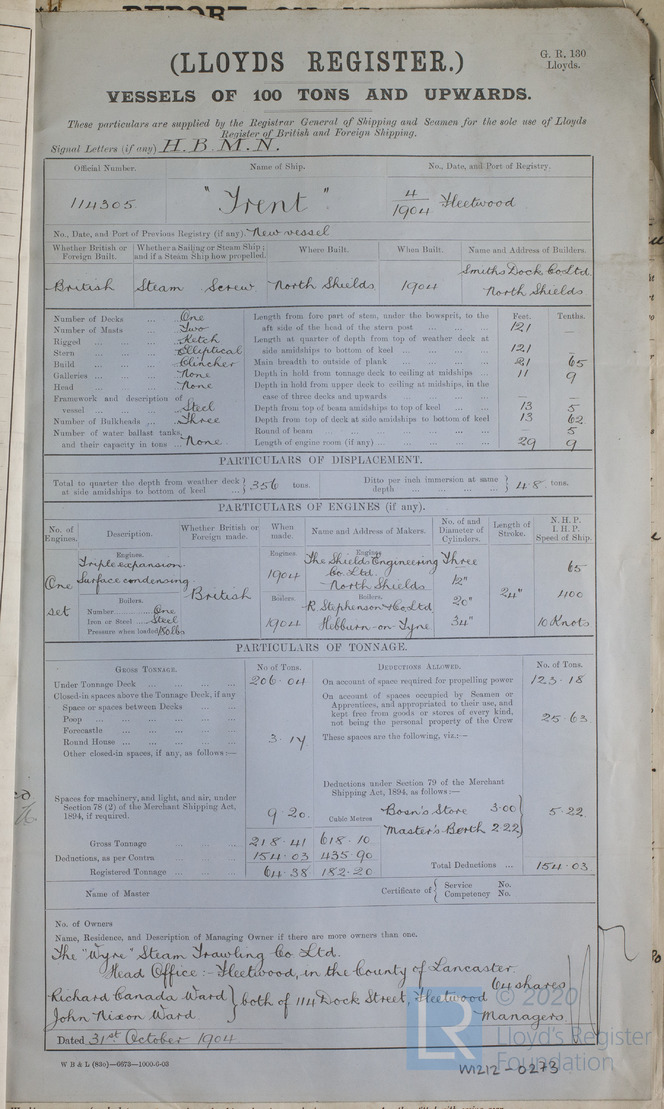 (LLOYDS REGISTER.)
G. R. 130
Lloyds.
VESSELS OF 100 TONS AND UPWARDS.
These particulars are supplied by the Registrar General of Shipping and Seamen for the sole use of Lloyds
Register of British and Foreign Shipping.
Signal Letters (if any) H.B.M.N.
Official Number. Name of Ship. No., Date, and Port of Registry.
114305 "Trent" 4/1904 Fleetwood
No., Date, and Port of Previous Registry (if any) New vessel
Whether British or Foreign Built. Whether a Sailing or Steam Ship; and if a Steam Ship how propelled. Where Built. When Built. Name and Address of Builders.
British Steam Screw North Shields 1904 Smiths Dock Co Ltd. North Shields
Number of Decks ... One
Number of Masts ... Two
Rigged ... Ketch
Stern ... Elliptical
Build ... Clincher
Galleries ... None
Head ... None
Framework and description of vessel ... Steel
Number of Bulkheads ... Three
Number of water ballast tanks, and their capacity in tons ... None
Feet. Tenths.
Length from fore part of stem, under the bowsprit, to the aft side of the head of the stern post ... 121 —
Length at quarter of depth from top of weather deck at side amidships to bottom of keel ... 121 —
Main breadth to outside of plank ... 21 65
Depth in hold from tonnage deck to ceiling at midships ... 11 9
Depth in hold from upper deck to ceiling at midships, in the case of three decks and upwards ... — —
Depth from top of beam amidships to top of keel ... 13 5
Depth from top of deck at side amidships to bottom of keel 13 62
Round of beam ... 5
Length of engine room (if any) ... 29 9
PARTICULARS OF DISPLACEMENT.
Total to quarter the depth from weather deck at side amidships to bottom of keel ... 356 tons.
Ditto per inch immersion at same depth ... 4.8 tons.
PARTICULARS OF ENGINES (if any).
No. of Engines. Description. Whether British or Foreign made. When made. Name and Address of Makers. No. of and Diameter of Cylinders. Length of Stroke. N.H.P. I.H.P. Speed of Ship.
One set
Engines.
Triple expansion
Surface condensing
Boilers.
Number ... One
Iron or Steel ... Steel
Pressure when loaded 180 lbs
British
Engines.
1904
Boilers.
1904
Engines.
The Shields Engineering Co. Ltd. North Shields
Boilers.
R. Stephenson & Co Ltd
Hebburn-on-Tyne
Three
12"
20"
34"
24"
65
400
10 Knots
PARTICULARS OF TONNAGE.
GROSS TONNAGE. No of Tons.
Under Tonnage Deck ... 206.04
Closed-in spaces above the Tonnage Deck, if any
Space or spaces between Decks ...
Poop ...
Forecastle ...
Round House ... 3.17
Other closed-in spaces, if any, as follows:—
Spaces for machinery, and light, and air, under Section 78 (2) of the Merchant Shipping Act, 1894, if required. 9.20
Cubic Metres
Gross Tonnage ... 218.41 618.10
Deductions, as per Contra ... 154.03 435.90
Registered Tonnage ... 64.38 182.20
DEDUCTIONS ALLOWED. No. of Tons.
On account of space required for propelling power 123.18
On account of spaces occupied by Seamen or Apprentices, and appropriated to their use, and kept free from goods or stores of every kind, not being the personal property of the Crew 25.63
These spaces are the following, viz.:—
Deductions under Section 79 of the Merchant Shipping Act, 1894, as follows:—
Bosn's Store 3.00
Master's Berth 2.22
5.22
Total Deductions ... 154.03
Name of Master
Certificate of Service No.
Competency No.
No. of Owners
Name, Residence, and Description of Managing Owner if there are more owners than one.
The "Wyre" Steam Trawling Co Ltd.
Head Office:- Fleetwood, in the County of Lancaster.
64 shares
Richard Canada Ward
John Nixon Ward } both of 114 Dock Street, Fleetwood
Managers
Dated 31st October 1904
W B & L (83o)—6673—1000-6-03
W1212-0273
© 2020
LR
Lloyd's Register
Foundation